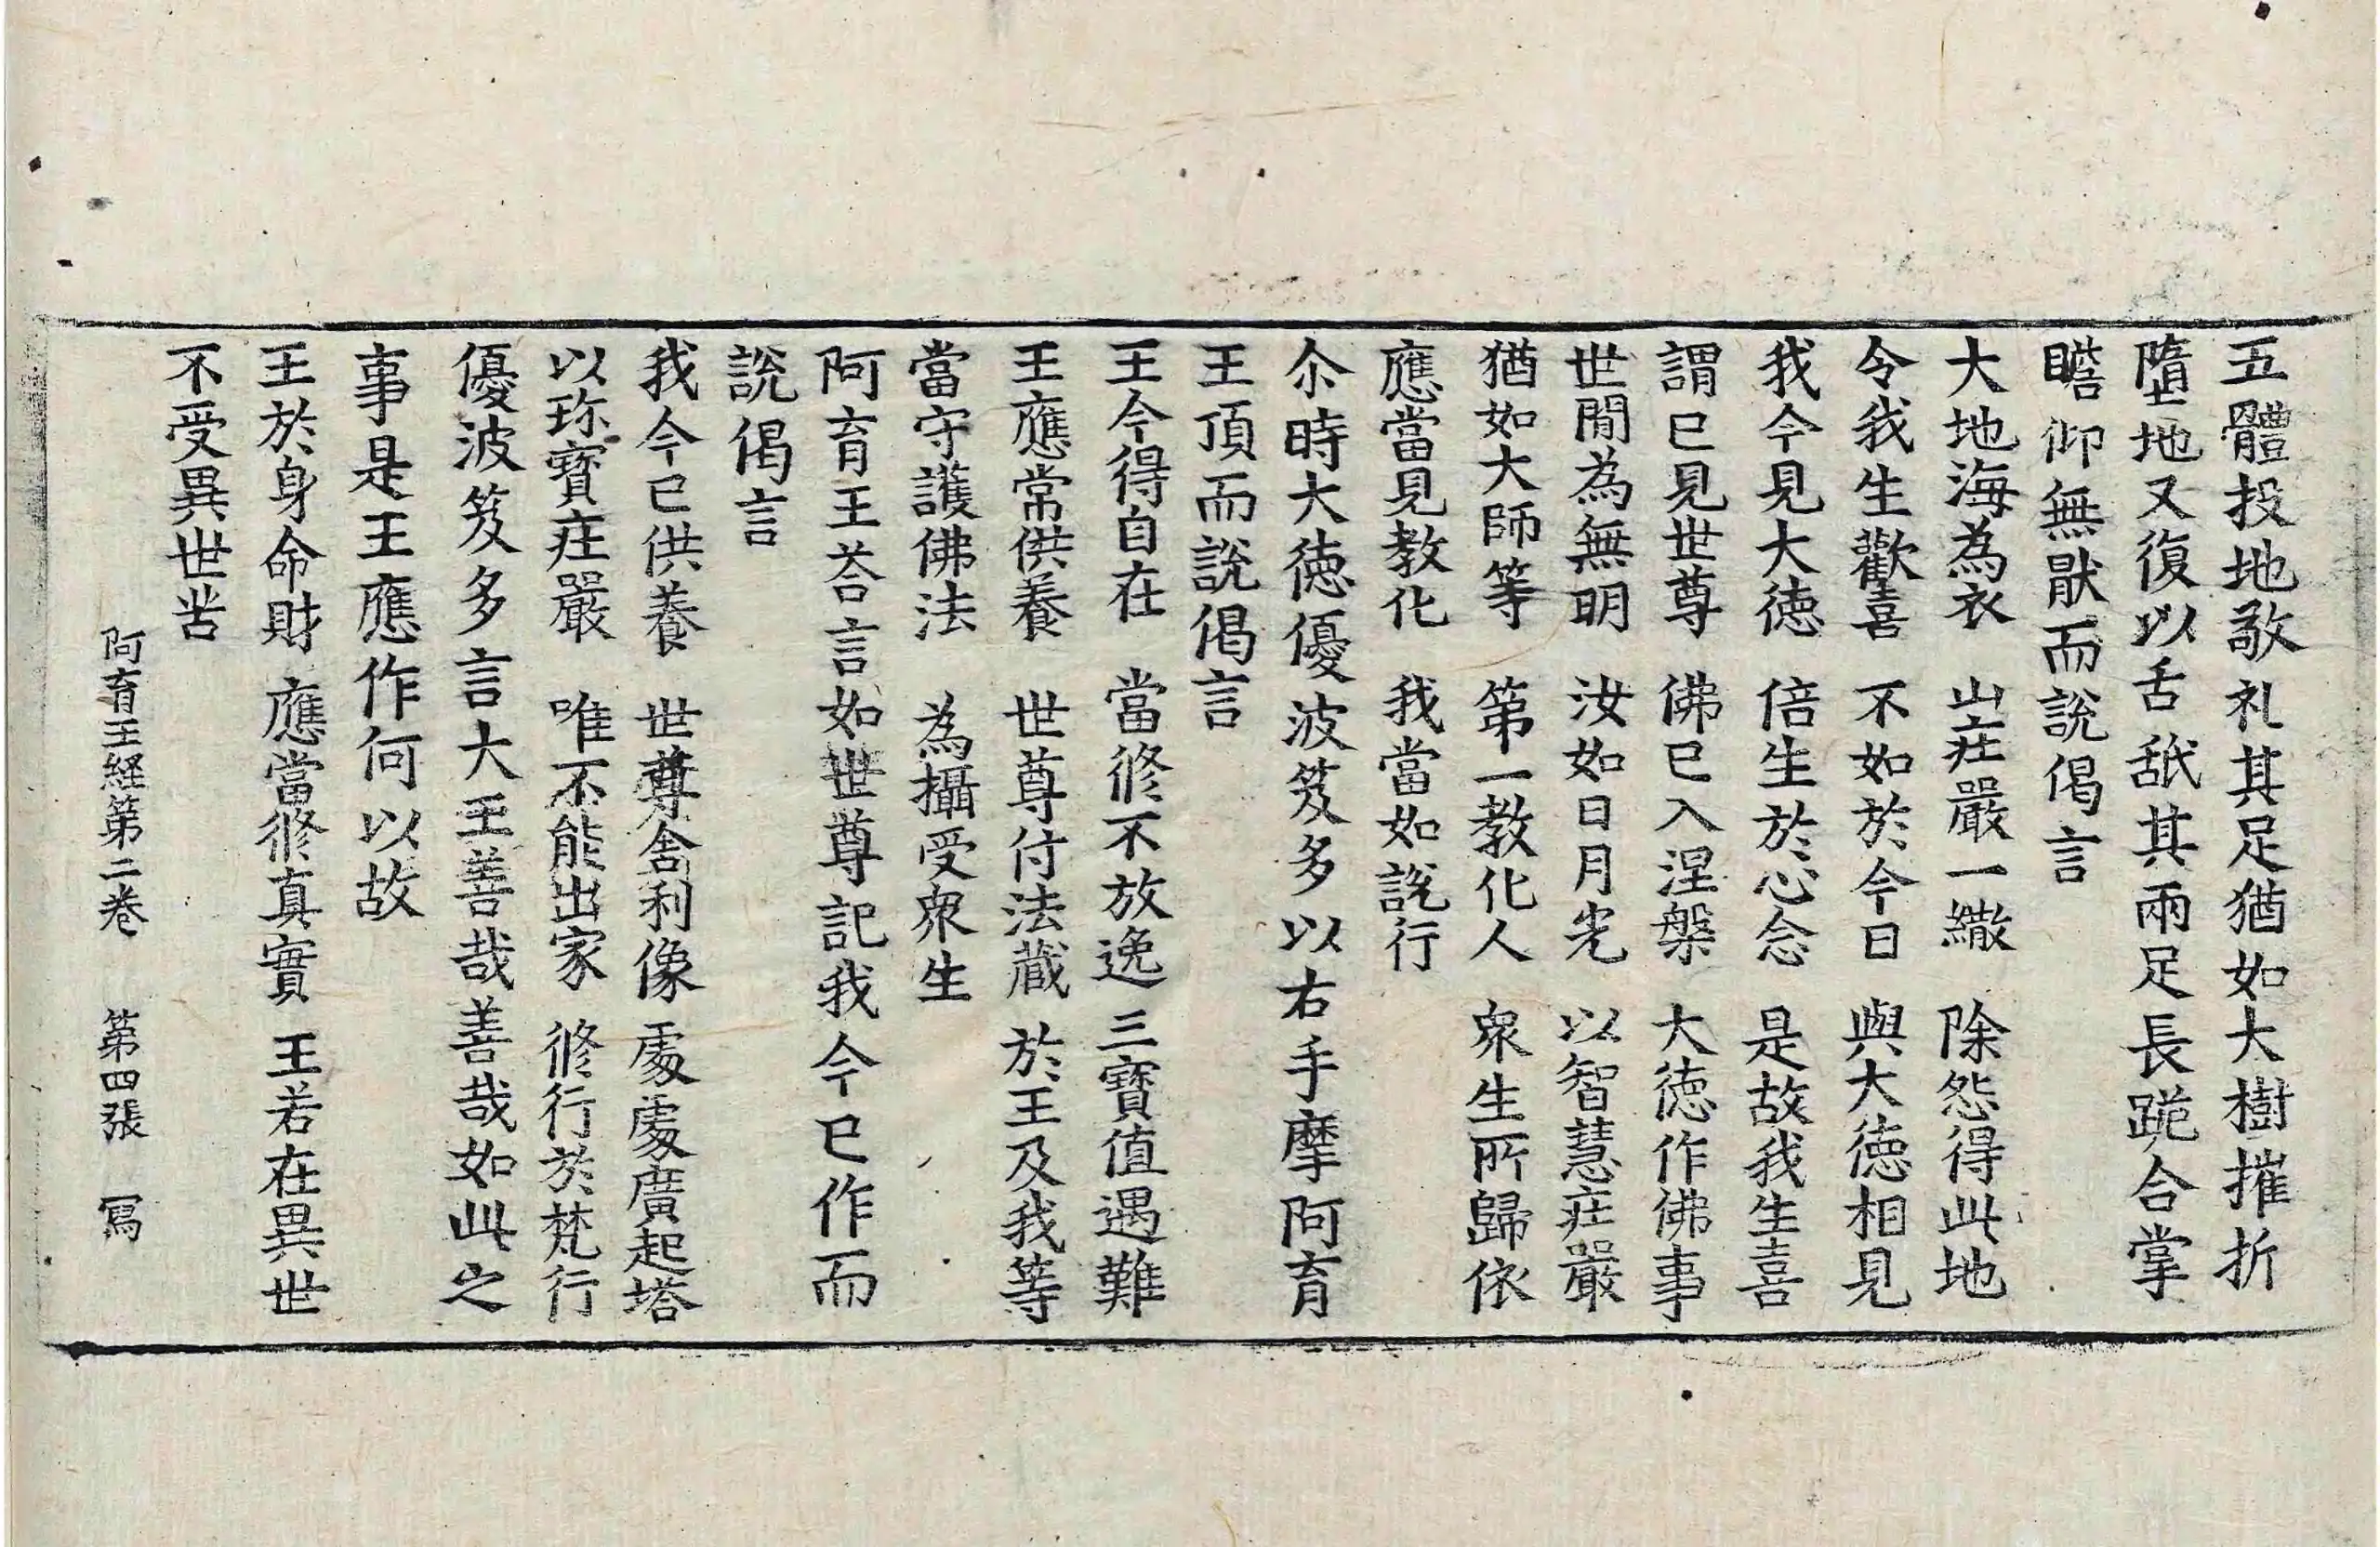 五體投地敬礼其足猶如大樹摧折
墮地又復以舌舐其兩足長跪合掌
瞻仰無猒而說偈言
大地海為衣　山庄嚴一繖　除怨得此地
令我生歡喜　不如於今日　與大徳相見
我今見大徳　倍生於心念　是故我生喜
謂已見世尊　佛已入涅槃　大徳作佛事
世閒為無明　汝如日月光　以智慧庄嚴
猶如大師等　第一教化人　衆生所歸依
應當見教化　我當如說行
尒時大徳優波笈多以右手摩阿育
王頂而說偈言
王今得自在　當修不放逸　三寶值遇難
王應常供養　世尊付法藏　於王及我等
當守護佛法　為攝受衆生
阿育王荅言如世尊記我今已作而
說偈言
我今已供養　世尊舍利像　處處廣起塔
以珎寶庄嚴　唯不能出家　修行於梵行
優波笈多言大王善哉善哉如此之
事是王應作何以故
王於身命財　應當修真實　王若在異世
不受異世苦
阿育王経第二卷　第四張　冩